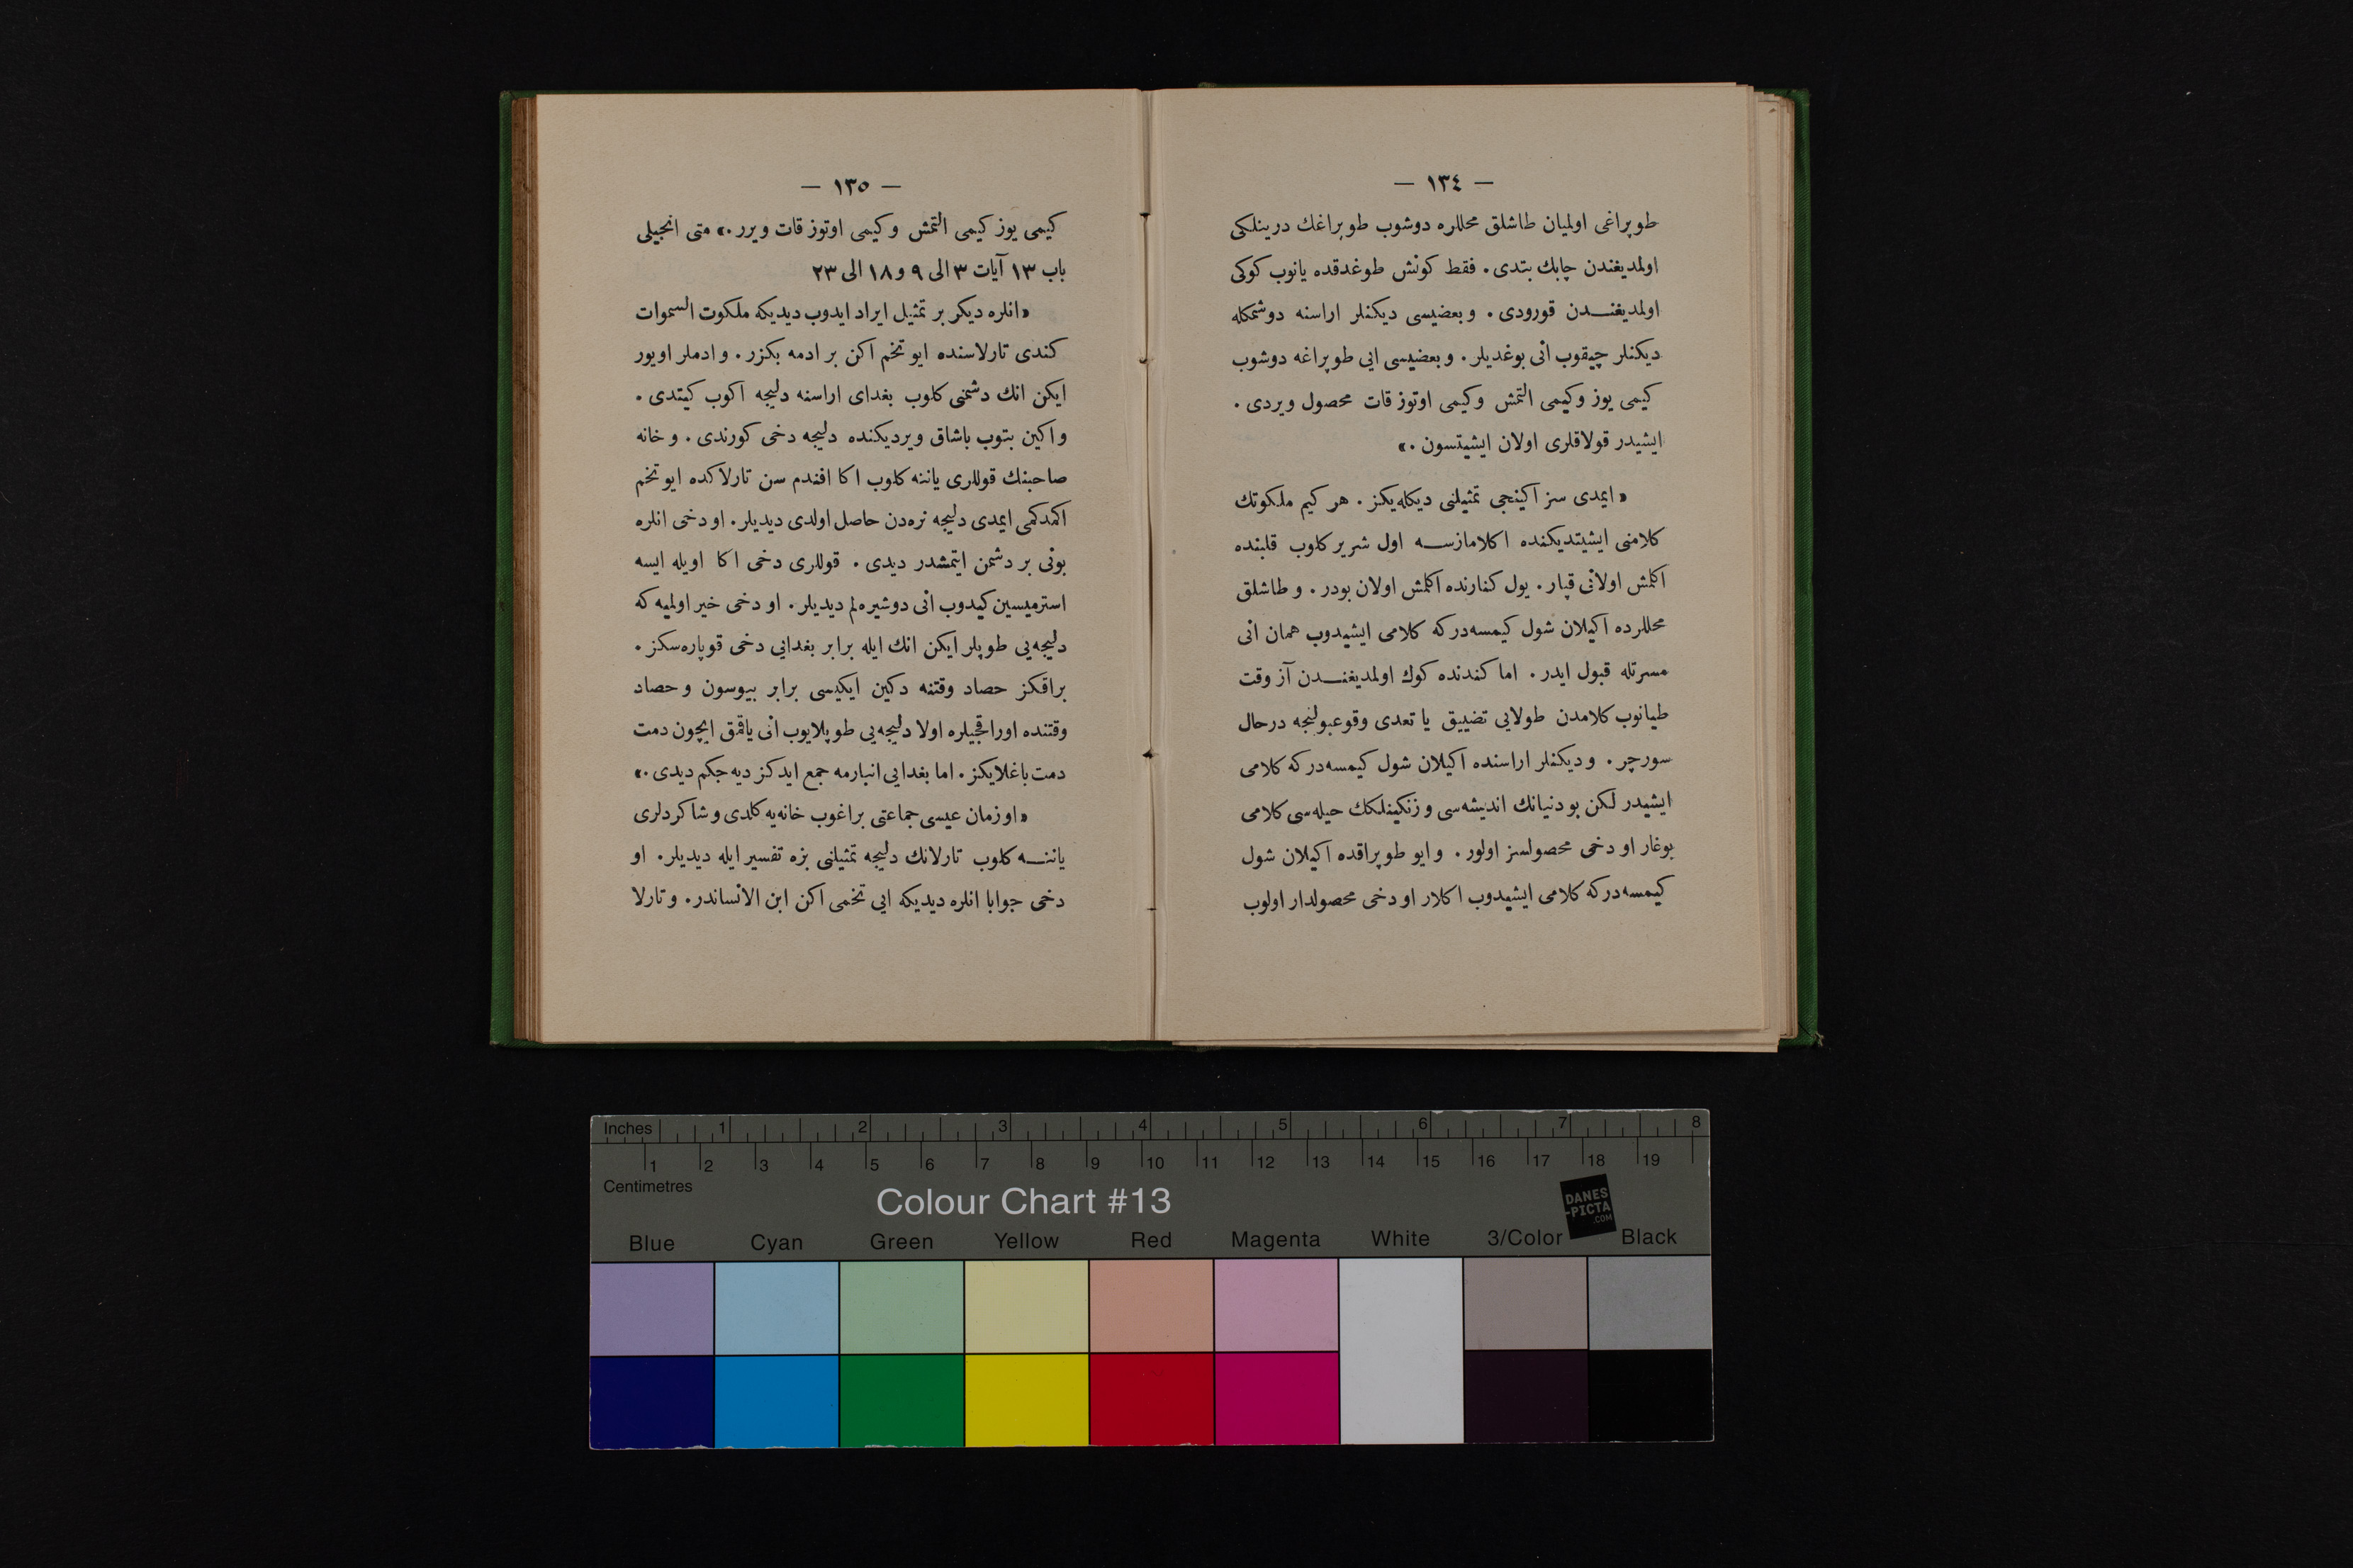 — ١٣٤ —
طوپراغی اولمیان طاشلق محللره دوشوب طوپراغك درینلکی
اولمدیغندن چابك بتدی. فقط کونش طوغدقده یانوب کوکی
اولمدیغنـدن قورودی. وبعضیسی دیکنلر اراسنه دوشمکله
دیکنلر چیقوب انی بوغدیلر. وبعضیسی ایی طوپراغه دوشوب
کیمی یوز وکیمی التمش وکیمی اوتوز قات محصول ویردی.
ایشیدر قولاقلری اولان ایشیتسون.»
«ایمدی سز اکینجی تمثیلنی دیکله‌یکز. هر کیم ملکوتك
کلامنی ایشیتدیکنده اکلامازسـه اول شریر کلوب قلبنده
اکلمش اولانی قپار. یول کنارنده اکلمش اولان بودر. وطاشلق
محللرده اکیلان شول کیمسه‌درکه کلامی ایشیدوب همان انی
مسرتله قبول ایدر. اما کندنده کوك اولمدیغنـدن آز وقت
طیانوب کلامدن طولایی تضییق یا تعدی وقوعبولنجه درحال
سورچر. ودیکنلر اراسنده اکیلان شول کیمسه‌درکه کلامی
ایشیدر لکن بو دنیانك اندیشه‌سی وزنکینلکك حیله‌سی کلامی
بوغار او دخی محصولسز اولور. وایو طوپراقده اکیلان شول
کیمسه‌درکه کلامی ایشیدوب اکلار او دخی محصولدار اولوب
— ١٣٥ —
کیمی یوز کیمی التمش وکیمی اوتوز قات ویرر.» متی انجیلی
باب ١٣ آیات ٣ الی ٩ و ١٨ الی ٢٣
«انلره دیکر بر تمثیل ایراد ایدوب دیدیکه ملکوت السموات
کندی تارلاسنده ایو تخم اکن بر ادمه بکزر. وادملر اویور
ایکن انك دشمنی کلوب بغدای اراسنه دلیجه اکوب کیتدی.
واکین بتوب باشاق ویردیکنده دلیجه دخی کورندی. وخانه
صاحبنك قوللری یاننه کلوب اکا افندم سن تارلاکده ایو تخم
اکمدکمی ایمدی دلیجه نره‌دن حاصل اولدی دیدیلر. او دخی انلره
بونی بر دشمن ایتمشدر دیدی. قوللری دخی اکا اویله ایسه
استرمیسین کیدوب انی دوشیره‌لم دیدیلر. او دخی خیر اولمیه که
دلیجه‌یی طوپلر ایکن انك ایله برابر بغدایی دخی قوپاره‌سکز.
براقکز حصاد وقتنه دکین ایکیسی برابر بیوسون وحصاد
وقتنده اوراقجیلره اولا دلیجه‌یی طوپلایوب انی یاقمق ایچون دمت
دمت باغلایکز. اما بغدایی انبارمه جمع ایدکز دیه‌جکم دیدی.»
«اوزمان عیسی جماعتی براغوب خانه‌یه کلدی وشاکردلری
یاننـه کلوب تارلانك دلیجه تمثیلنی بزه تفسیر ایله دیدیلر. او
دخی جوابا انلره دیدیکه ایی تخمی اکن ابن الانساندر. وتارلا
Inches 1 2 3 4 5 6 7 8
1 2 3 4 5 6 7 8 9 10 11 12 13 14 15 16 17 18 19
Centimetres
Colour Chart #13
DANES
-PICTA
.COM
Blue Cyan Green Yellow Red Magenta White 3/Color Black